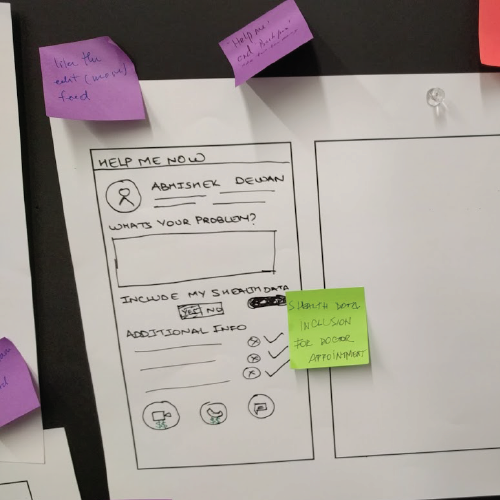 "Help me"
feed
HELP ME NOW
ABHISHEK DEWAN
WHATS YOUR PROBLEM?
INCLUDE MY SHEALTH DATA
YES NO
ADDITIONAL INFO
SHEALTH DATA
INCLUSION
FOR DOCTOR
APPOINTMENT